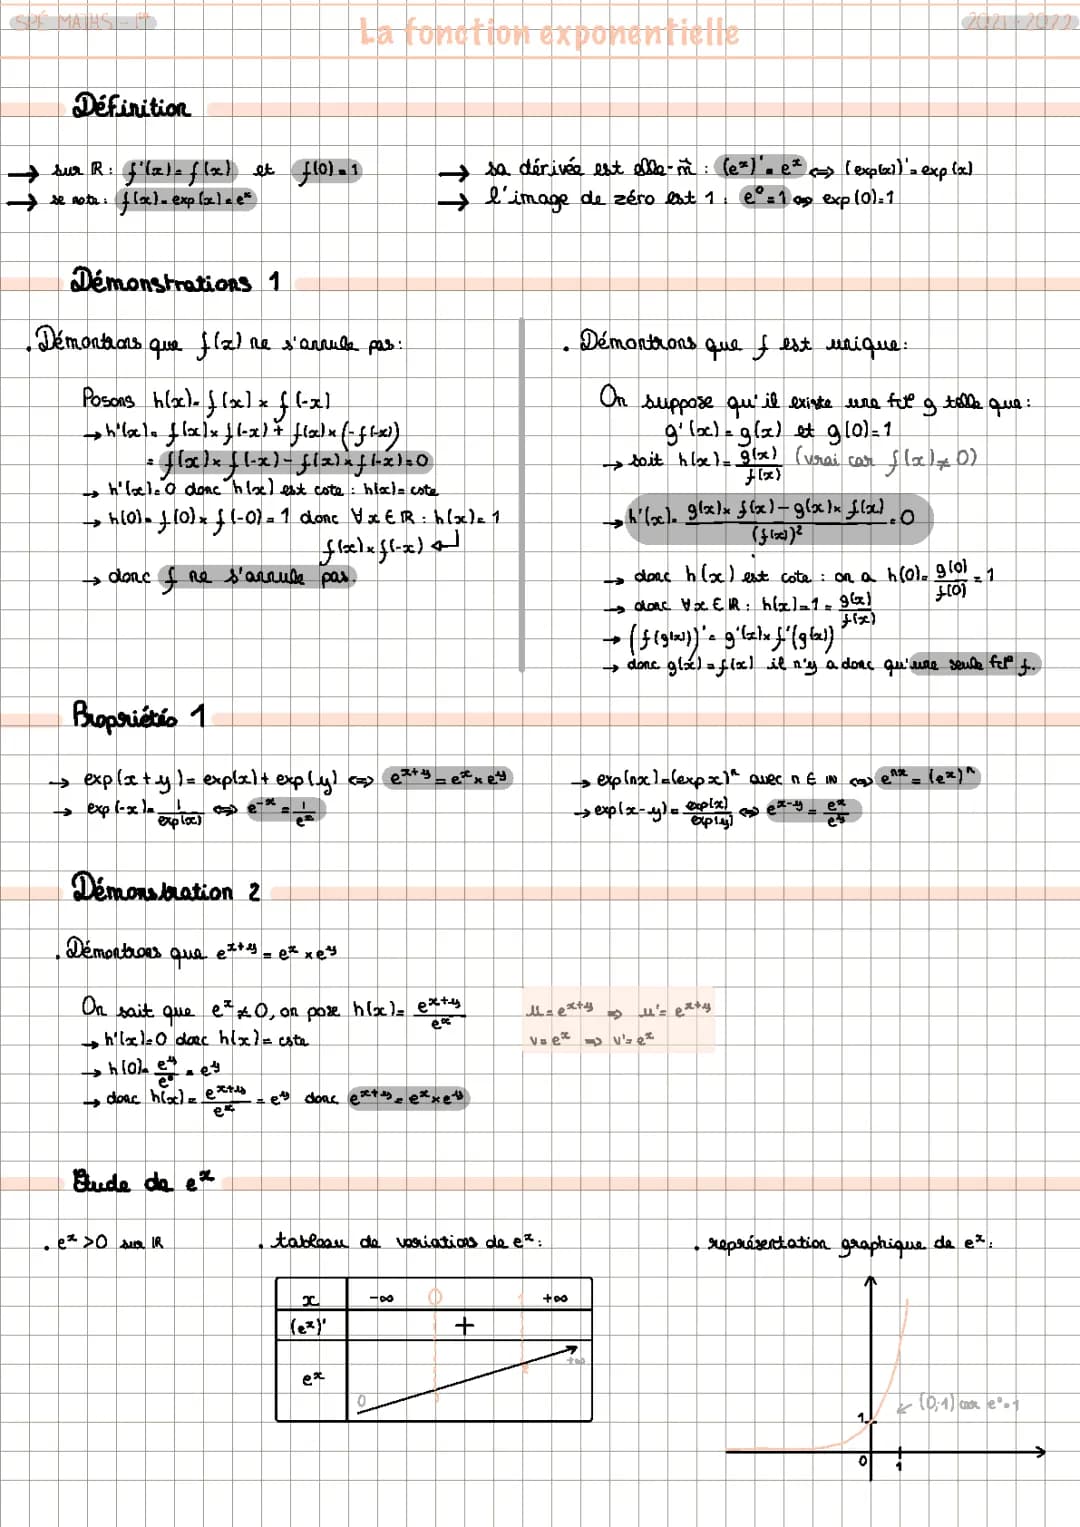 SPÉ MATHS - 1ère
La fonction exponentielle
2021-2022
Définition
→ sur ℝ : f'(x) = f(x) et f(0) = 1
→ se note : f(x) = exp(x) = e^x
→ sa dérivée est elle-m̂ : (e^x)' = e^x ⇔ (exp(x))' = exp(x)
→ l'image de zéro est 1 : e^0 = 1 ⇔ exp(0) = 1
Démonstrations 1
. Démontrons que f(x) ne s'annule pas :
Posons h(x) = f(x) × f(-x)
→ h'(x) = f(x) × f(-x) + f(x) × (-f(-x))
= f(x) × f(-x) - f(x) × f(-x) = 0
→ h'(x) = 0 donc h(x) est cste : h(x) = cste
→ h(0) = f(0) × f(-0) = 1 donc ∀x ∈ ℝ : h(x) = 1
f(x) × f(-x) ↵
→ donc f ne s'annule pas.
. Démontrons que f est unique :
On suppose qu'il existe une fct° g telle que :
g'(x) = g(x) et g(0) = 1
→ soit h(x) = g(x)/f(x) (vrai car f(x) ≠ 0)
→ h'(x) = (g(x) × f(x) - g(x) × f(x))/(f(x))² = 0
→ donc h(x) est cste : on a h(0) = g(0)/f(0) = 1
→ donc ∀x ∈ ℝ : h(x) = 1 = g(x)/f(x)
→ (f(g(x)))' = g'(x) × f'(g(x))
→ donc g(x) = f(x) il n'y a donc qu'une seule fct° f.
Propriétés 1
→ exp(x + y) = exp(x) + exp(y) ⇔ e^(x+y) = e^x × e^y
→ exp(-x) = 1/exp(x) ⇔ e^-x = 1/e^x
→ exp(nx) = (exp x)^n avec n ∈ ℕ ⇔ e^nx = (e^x)^n
→ exp(x-y) = exp(x)/exp(y) ⇔ e^(x-y) = e^x/e^y
Démonstration 2
. Démontrons que e^(x+y) = e^x × e^y
On sait que e^x ≠ 0, on pose h(x) = e^(x+y)/e^x
→ h'(x) = 0 donc h(x) = cste
→ h(0) = e^y/e^0 = e^y
→ donc h(x) = e^(x+y)/e^x = e^y donc e^(x+y) = e^x × e^y
u = e^(x+y) ⇒ u' = e^(x+y)
v = e^x ⇒ v' = e^x
Étude de e^x
. e^x > 0 sur ℝ
. tableau de variations de e^x :
x -∞ 0 1 +∞
(e^x)' +
e^x 0 +∞
. représentation graphique de e^x :
(0;1) car e^0 = 1
1
0 1